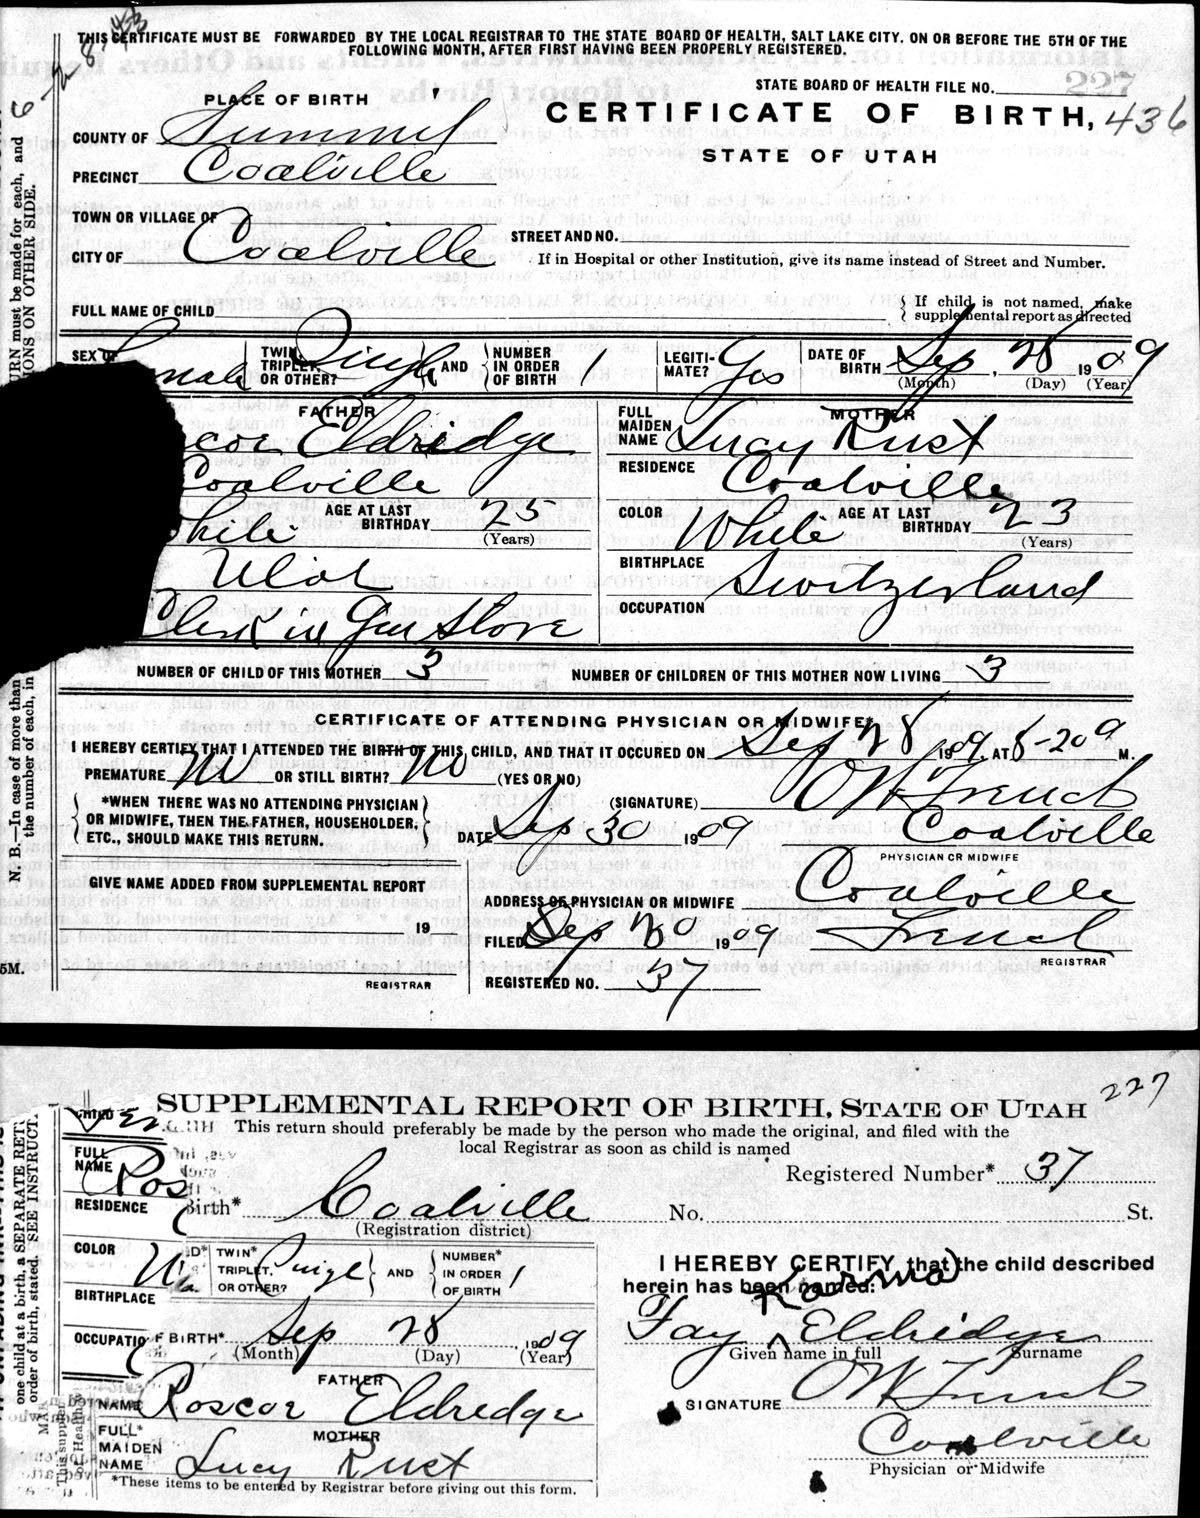 THIS CERTIFICATE MUST BE FORWARDED BY THE LOCAL REGISTRAR TO THE STATE BOARD OF HEALTH, SALT LAKE CITY, ON OR BEFORE THE 5TH OF THE
FOLLOWING MONTH, AFTER FIRST HAVING BEEN PROPERLY REGISTERED.
STATE BOARD OF HEALTH FILE NO.
PLACE OF BIRTH
CERTIFICATE OF BIRTH, 436
STATE OF UTAH
COUNTY OF Summit
PRECINCT Coalville
TOWN OR VILLAGE OF
CITY OF Coalville
STREET AND NO.
If in Hospital or other Institution, give its name instead of Street and Number.
FULL NAME OF CHILD
If child is not named, make
supplemental report as directed
SEX OF Female
TWIN, TRIPLET, OR OTHER? Single AND NUMBER IN ORDER OF BIRTH 1
LEGITIMATE? Yes
DATE OF BIRTH Sep, 28 1909
(Month) (Day) (Year)
FATHER
scoe Eldredge
Coalville
hite AGE AT LAST BIRTHDAY 25
(Years)
Utah
Clerk in Gen Store
MOTHER
FULL MAIDEN NAME Lucy Rust
RESIDENCE Coalville
COLOR White AGE AT LAST BIRTHDAY 23
(Years)
BIRTHPLACE Switzerland
OCCUPATION
NUMBER OF CHILD OF THIS MOTHER 3 NUMBER OF CHILDREN OF THIS MOTHER NOW LIVING 3
CERTIFICATE OF ATTENDING PHYSICIAN OR MIDWIFE*
I HEREBY CERTIFY THAT I ATTENDED THE BIRTH OF THIS CHILD, AND THAT IT OCCURED ON Sep 28 1909, AT 8-20 a M.
PREMATURE No OR STILL BIRTH? No (YES OR NO)
*WHEN THERE WAS NO ATTENDING PHYSICIAN
OR MIDWIFE, THEN THE FATHER, HOUSEHOLDER,
ETC., SHOULD MAKE THIS RETURN.
(SIGNATURE) French
DATE Sep 30 1909 Coalville
PHYSICIAN OR MIDWIFE
GIVE NAME ADDED FROM SUPPLEMENTAL REPORT
19
REGISTRAR
ADDRESS OF PHYSICIAN OR MIDWIFE Coalville
FILED Sep 30 1909 French
REGISTRAR
REGISTERED NO. 37
5M.
N. B.—In case of more than
the number of each, in
URN must be made for each, and
IONS ON OTHER SIDE.
227
SUPPLEMENTAL REPORT OF BIRTH, STATE OF UTAH
This return should preferably be made by the person who made the original, and filed with the
local Registrar as soon as child is named
Registered Number* 37
FULL NAME Ros
RESIDENCE
Birth* Coalville No. St.
(Registration district)
COLOR
BIRTHPLACE
TWIN* TRIPLET, OR OTHER? Single AND NUMBER* IN ORDER OF BIRTH 1
OCCUPATIO
F BIRTH* Sep 28, 1909
(Month) (Day) (Year)
FATHER
NAME Roscoe Eldredge
MOTHER
FULL* MAIDEN NAME Lucy Rust
*These items to be entered by Registrar before giving out this form.
I HEREBY CERTIFY that the child described
herein has been named:
Fay Karma Eldredge
Given name in full Surname
SIGNATURE French
Coalville
Physician or Midwife
one child at a birth, a SEPARATE RET
order of birth, stated. SEE INSTRUCT